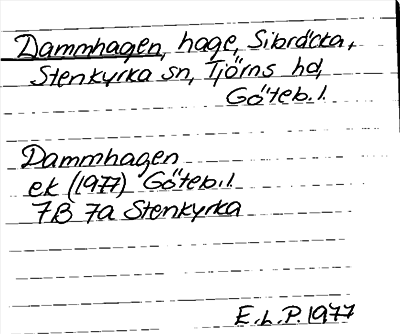 Dammhagen, hage, Sibräcka,
Stenkyrka sn, Tjörns hd,
Göteb.l.
Dammhagen
ek (1977) Göteb.l.
7B 7a Stenkyrka
E.L.P. 1977